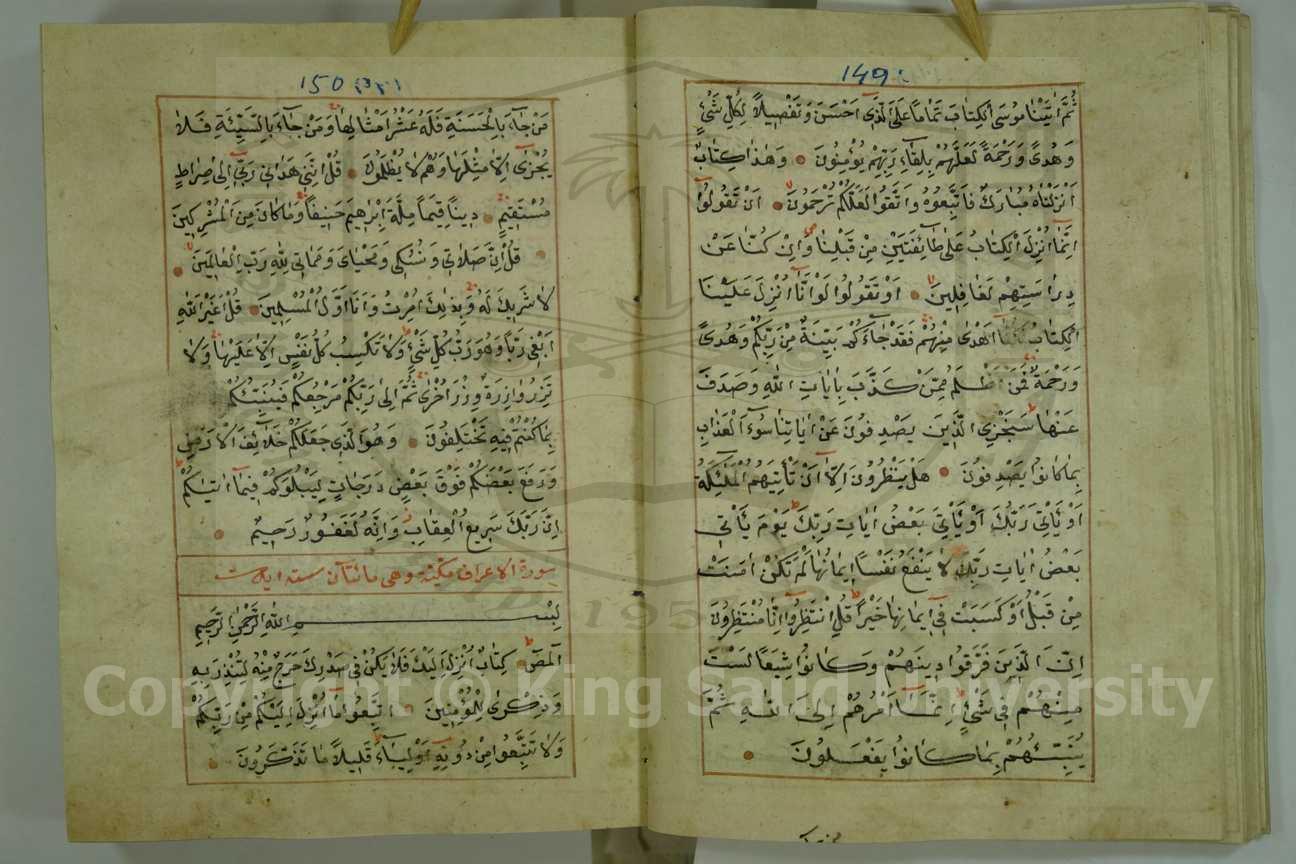 149
ثُمَّ اٰتَيْنَا مُوسَى الْكِتَابَ تَمَامًا عَلَى الَّذ۪ٓي اَحْسَنَ وَتَفْص۪يلًا لِكُلِّ شَيْءٍ
وَهُدًى وَرَحْمَةً لَعَلَّهُمْ بِلِقَٓاءِ رَبِّهِمْ يُؤْمِنُونَ وَهٰذَا كِتَابٌ
اَنْزَلْنَاهُ مُبَارَكٌ فَاتَّبِعُوهُ وَاتَّقُوا لَعَلَّكُمْ تُرْحَمُونَ اَنْ تَقُولُوٓا
اِنَّمَٓا اُنْزِلَ الْكِتَابُ عَلٰى طَٓائِفَتَيْنِ مِنْ قَبْلِنَا وَاِنْ كُنَّا عَنْ
دِرَاسَتِهِمْ لَغَافِل۪ينَ اَوْ تَقُولُوا لَوْ اَنَّٓا اُنْزِلَ عَلَيْنَا
الْكِتَابُ لَكُنَّٓا اَهْدٰى مِنْهُمْ فَقَدْ جَٓاءَكُمْ بَيِّنَةٌ مِنْ رَبِّكُمْ وَهُدًى
وَرَحْمَةٌ فَمَنْ اَظْلَمُ مِمَّنْ كَذَّبَ بِاٰيَاتِ اللّٰهِ وَصَدَفَ
عَنْهَا سَنَجْزِي الَّذ۪ينَ يَصْدِفُونَ عَنْ اٰيَاتِنَا سُٓوءَ الْعَذَابِ
بِمَا كَانُوا يَصْدِفُونَ هَلْ يَنْظُرُونَ اِلَّٓا اَنْ تَأْتِيَهُمُ الْمَلٰٓئِكَةُ
اَوْ يَأْتِيَ رَبُّكَ اَوْ يَأْتِيَ بَعْضُ اٰيَاتِ رَبِّكَ يَوْمَ يَأْت۪ي
بَعْضُ اٰيَاتِ رَبِّكَ لَا يَنْفَعُ نَفْسًا ا۪يمَانُهَا لَمْ تَكُنْ اٰمَنَتْ
مِنْ قَبْلُ اَوْ كَسَبَتْ ف۪ٓي ا۪يمَانِهَا خَيْرًا قُلِ انْتَظِرُٓوا اِنَّا مُنْتَظِرُونَ
اِنَّ الَّذ۪ينَ فَرَّقُوا د۪ينَهُمْ وَكَانُوا شِيَعًا لَسْتَ
مِنْهُمْ ف۪ي شَيْءٍ اِنَّمَٓا اَمْرُهُمْ اِلَى اللّٰهِ ثُمَّ
يُنَبِّئُهُمْ بِمَا كَانُوا يَفْعَلُونَ
150
مَنْ جَٓاءَ بِالْحَسَنَةِ فَلَهُ عَشْرُ اَمْثَالِهَا وَمَنْ جَٓاءَ بِالسَّيِّئَةِ فَلَا
يُجْزٰٓى اِلَّا مِثْلَهَا وَهُمْ لَا يُظْلَمُونَ قُلْ اِنَّن۪ي هَدٰين۪ي رَبّ۪ٓي اِلٰى صِرَاطٍ
مُسْتَق۪يمٍ د۪ينًا قِيَمًا مِلَّةَ اِبْرٰه۪يمَ حَن۪يفًا وَمَا كَانَ مِنَ الْمُشْرِك۪ينَ
قُلْ اِنَّ صَلَات۪ي وَنُسُك۪ي وَمَحْيَايَ وَمَمَات۪ي لِلّٰهِ رَبِّ الْعَالَم۪ينَ
لَا شَر۪يكَ لَهُ وَبِذٰلِكَ اُمِرْتُ وَاَنَا اَوَّلُ الْمُسْلِم۪ينَ قُلْ اَغَيْرَ اللّٰهِ
اَبْغ۪ي رَبًّا وَهُوَ رَبُّ كُلِّ شَيْءٍ وَلَا تَكْسِبُ كُلُّ نَفْسٍ اِلَّا عَلَيْهَا وَلَا
تَزِرُ وَازِرَةٌ وِزْرَ اُخْرٰى ثُمَّ اِلٰى رَبِّكُمْ مَرْجِعُكُمْ فَيُنَبِّئُكُمْ
بِمَا كُنْتُمْ ف۪يهِ تَخْتَلِفُونَ وَهُوَ الَّذ۪ي جَعَلَكُمْ خَلَٓائِفَ الْاَرْضِ
وَرَفَعَ بَعْضَكُمْ فَوْقَ بَعْضٍ دَرَجَاتٍ لِيَبْلُوَكُمْ ف۪ي مَٓا اٰتٰيكُمْ
اِنَّ رَبَّكَ سَر۪يعُ الْعِقَابِ وَاِنَّهُ لَغَفُورٌ رَح۪يمٌ
سورة الاعراف مكية وهى مائتان ستة ايات
بِسْمِ اللّٰهِ الرَّحْمٰنِ الرَّح۪يمِ
الٓمٓصٓ كِتَابٌ اُنْزِلَ اِلَيْكَ فَلَا يَكُنْ ف۪ي صَدْرِكَ حَرَجٌ مِنْهُ لِتُنْذِرَ بِهِ
وَذِكْرٰى لِلْمُؤْمِن۪ينَ اِتَّبِعُوا مَٓا اُنْزِلَ اِلَيْكُمْ مِنْ رَبِّكُمْ
وَلَا تَتَّبِعُوا مِنْ دُونِه۪ٓ اَوْلِيَٓاءَ قَل۪يلًا مَا تَذَكَّرُونَ
Copyright © King Saud University
1957